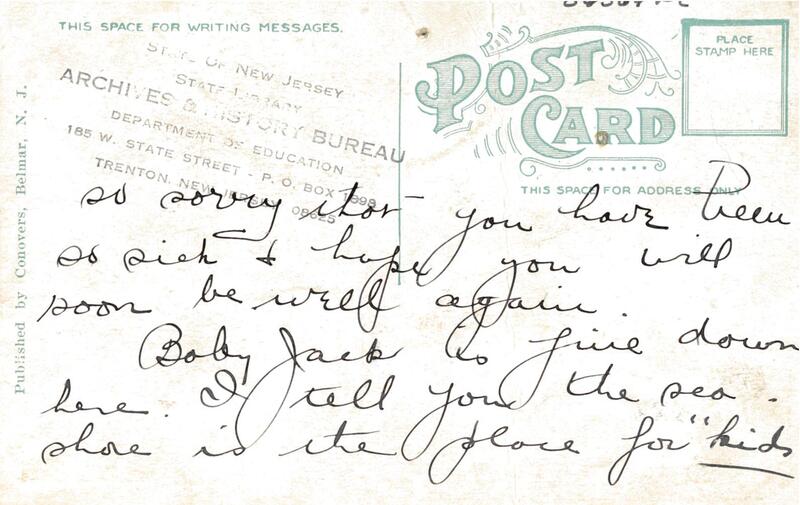 THIS SPACE FOR WRITING MESSAGES.
STATE OF NEW JERSEY
STATE LIBRARY
ARCHIVES & HISTORY BUREAU
DEPARTMENT OF EDUCATION
185 W. STATE STREET - P. O. BOX 1898
TRENTON, NEW JERSEY 08625
POST
CARD
PLACE
STAMP HERE
THIS SPACE FOR ADDRESS ONLY
Published by Conovers, Belmar, N. J.
so sorry that you have been
so sick & hope you will
soon be well again.
Baby Jack is fine down
here. I tell you the sea-
shore is the place for "kids